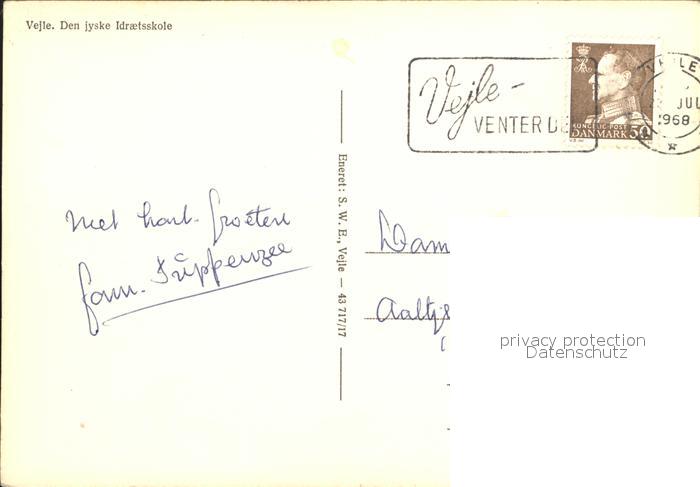 Vejle. Den jyske Idrætsskole
Vejle -
VENTER DE
VEJLE
JUL
1968
KONGELIG POST
DANMARK 50
Met hart. groeten
fam.
Eneret: S. W. E., Vejle — 43 717/17
Dam
Aaltje
privacy protection
Datenschutz